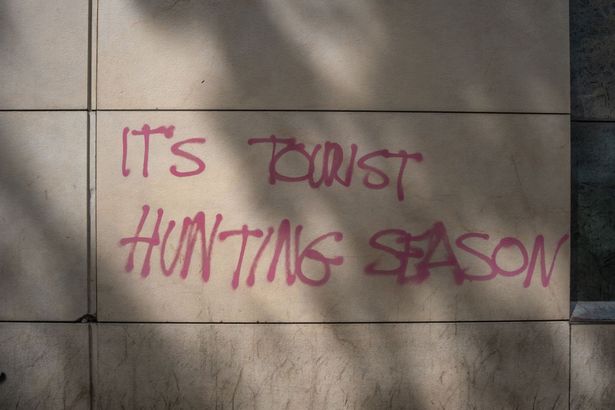 IT'S TOURIST
HUNTING SEASON